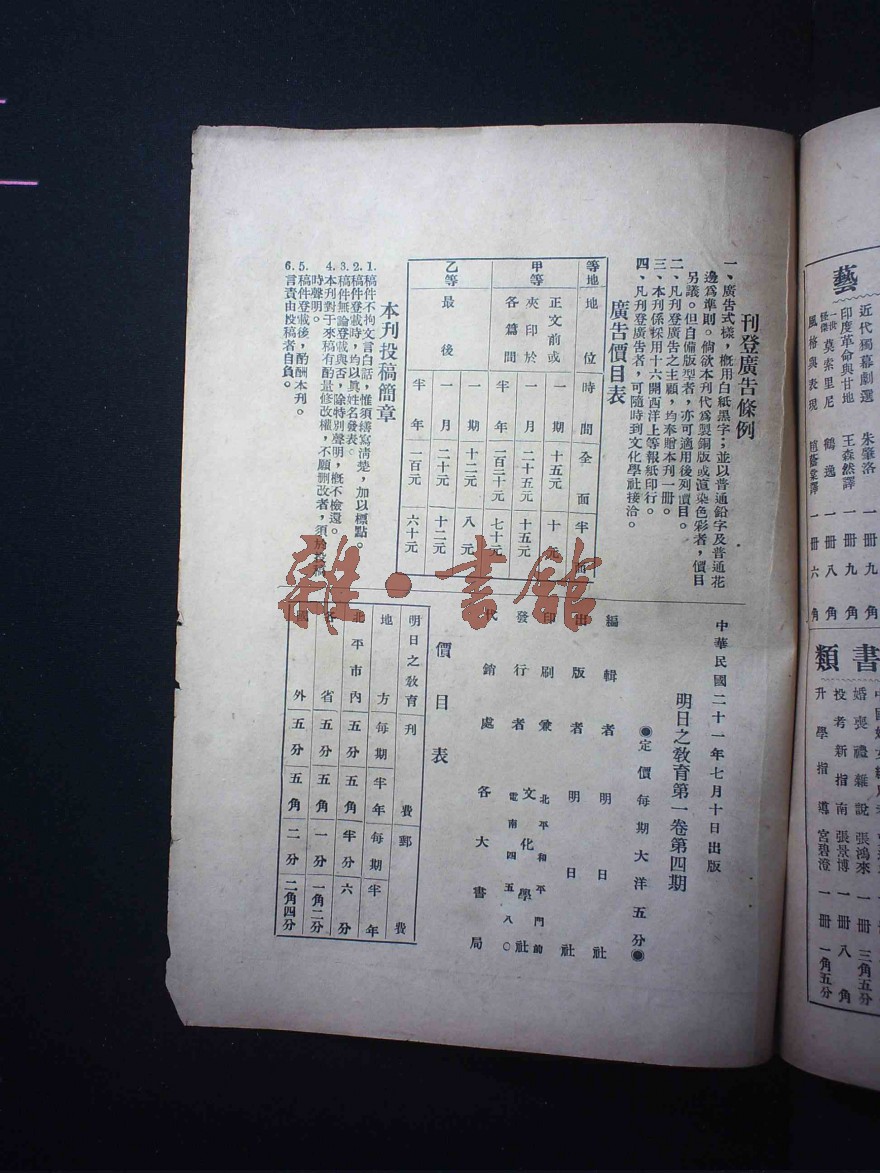 刊登廣告條例
一、廣告式樣，概用白紙黑字；並以普通鉛字及普通花
邊爲準則。倘欲本刊代爲製銅版或渲染色彩者，價目
另議。但自備版型者，亦可適用後列價目。
二、凡刊登廣告之主顧，均奉贈本刊一册。
三、本刊係採用十六開西洋上等報紙印行。
四、凡刊登廣告者，可隨時到文化學社接洽。
廣告價目表
等地 地位 時間 全面 半面
甲等 正文前或夾印於各篇間 一期 十五元 十元
一月 二十五元 十五元
半年 一百二十元 七十元
乙等 最後 一期 十二元 八元
一月 二十元 十二元
半年 一百元 六十元
本刊投稿簡章
1.稿件不拘文言白話，惟須繕寫清楚，加以標點。
2.稿件登載時，均以眞姓名發表。
3.稿件無論登載與否，除特別聲明，概不檢還。
4.本刊對于來稿有酌量修改權，不願删改者，須於投稿
時聲明。
5.稿件登載後，酌酬本刊。
6.言責由投稿者自負。
中華民國二十一年七月十日出版
明日之敎育第一卷第四期
●定價每期大洋五分●
編輯者 明日社
出版者 明日社
印刷兼發行者 文化學社
北平和平門前
電南四五八〇
代銷處 各大書局
價目表
明日之敎育 刊費 郵費
地方 每期 半年 每期 半年
北平市內 五分 五角 半分 六分
各省 五分 五角 一分 一角二分
國外 五分 五角 二分 二角四分
雜·書館
藝
近代獨幕劇選 朱肇洛 一册 九角
印度革命與甘地 王森然譯 一册 九角
一世怪傑 莫索里尼 鶴逸 一册 八角
風格與表現 一册 六角
書類
婚喪禮雜說 張鴻來 一册 三角五分
投考新指南 張景博 一册 八角
升學指導 宮碧澄 一册 一角五分